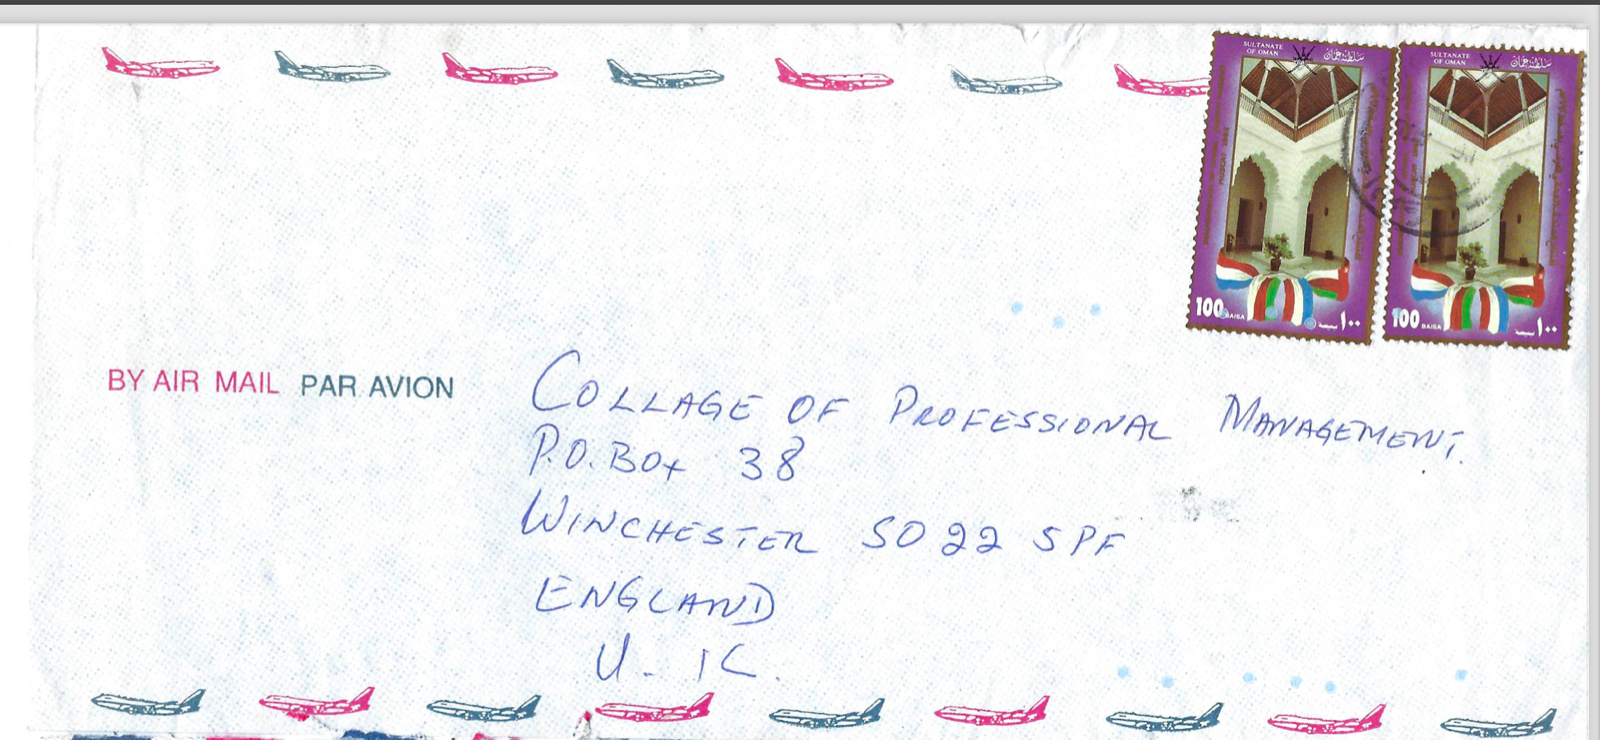 SULTANATE OF OMAN سلطنة عمان
SULTANATE OF OMAN سلطنة عمان
MUSCAT 1992
100 BAISA ١٠٠ بيسة
100 BAISA ١٠٠ بيسة
BY AIR MAIL PAR AVION
COLLAGE OF PROFESSIONAL MANAGEMENT.
P.O. BOX 38
WINCHESTER SO22 5PF
ENGLAND
U.K.